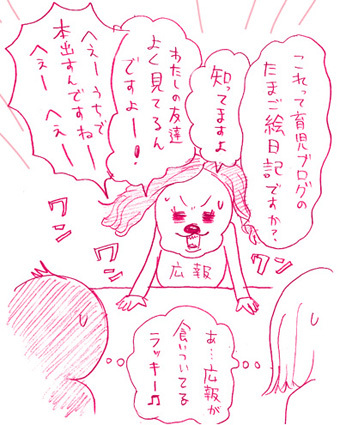 これって育児ブログの
たまご絵日記ですか?
知ってますよ
わたしの友達
よく見てるん
ですよー!
へぇーうちで
本出すんですねー
へぇー へぇー
ワン
ワン
ワン
広報
あ…広報が
食いついてる
ラッキー♫